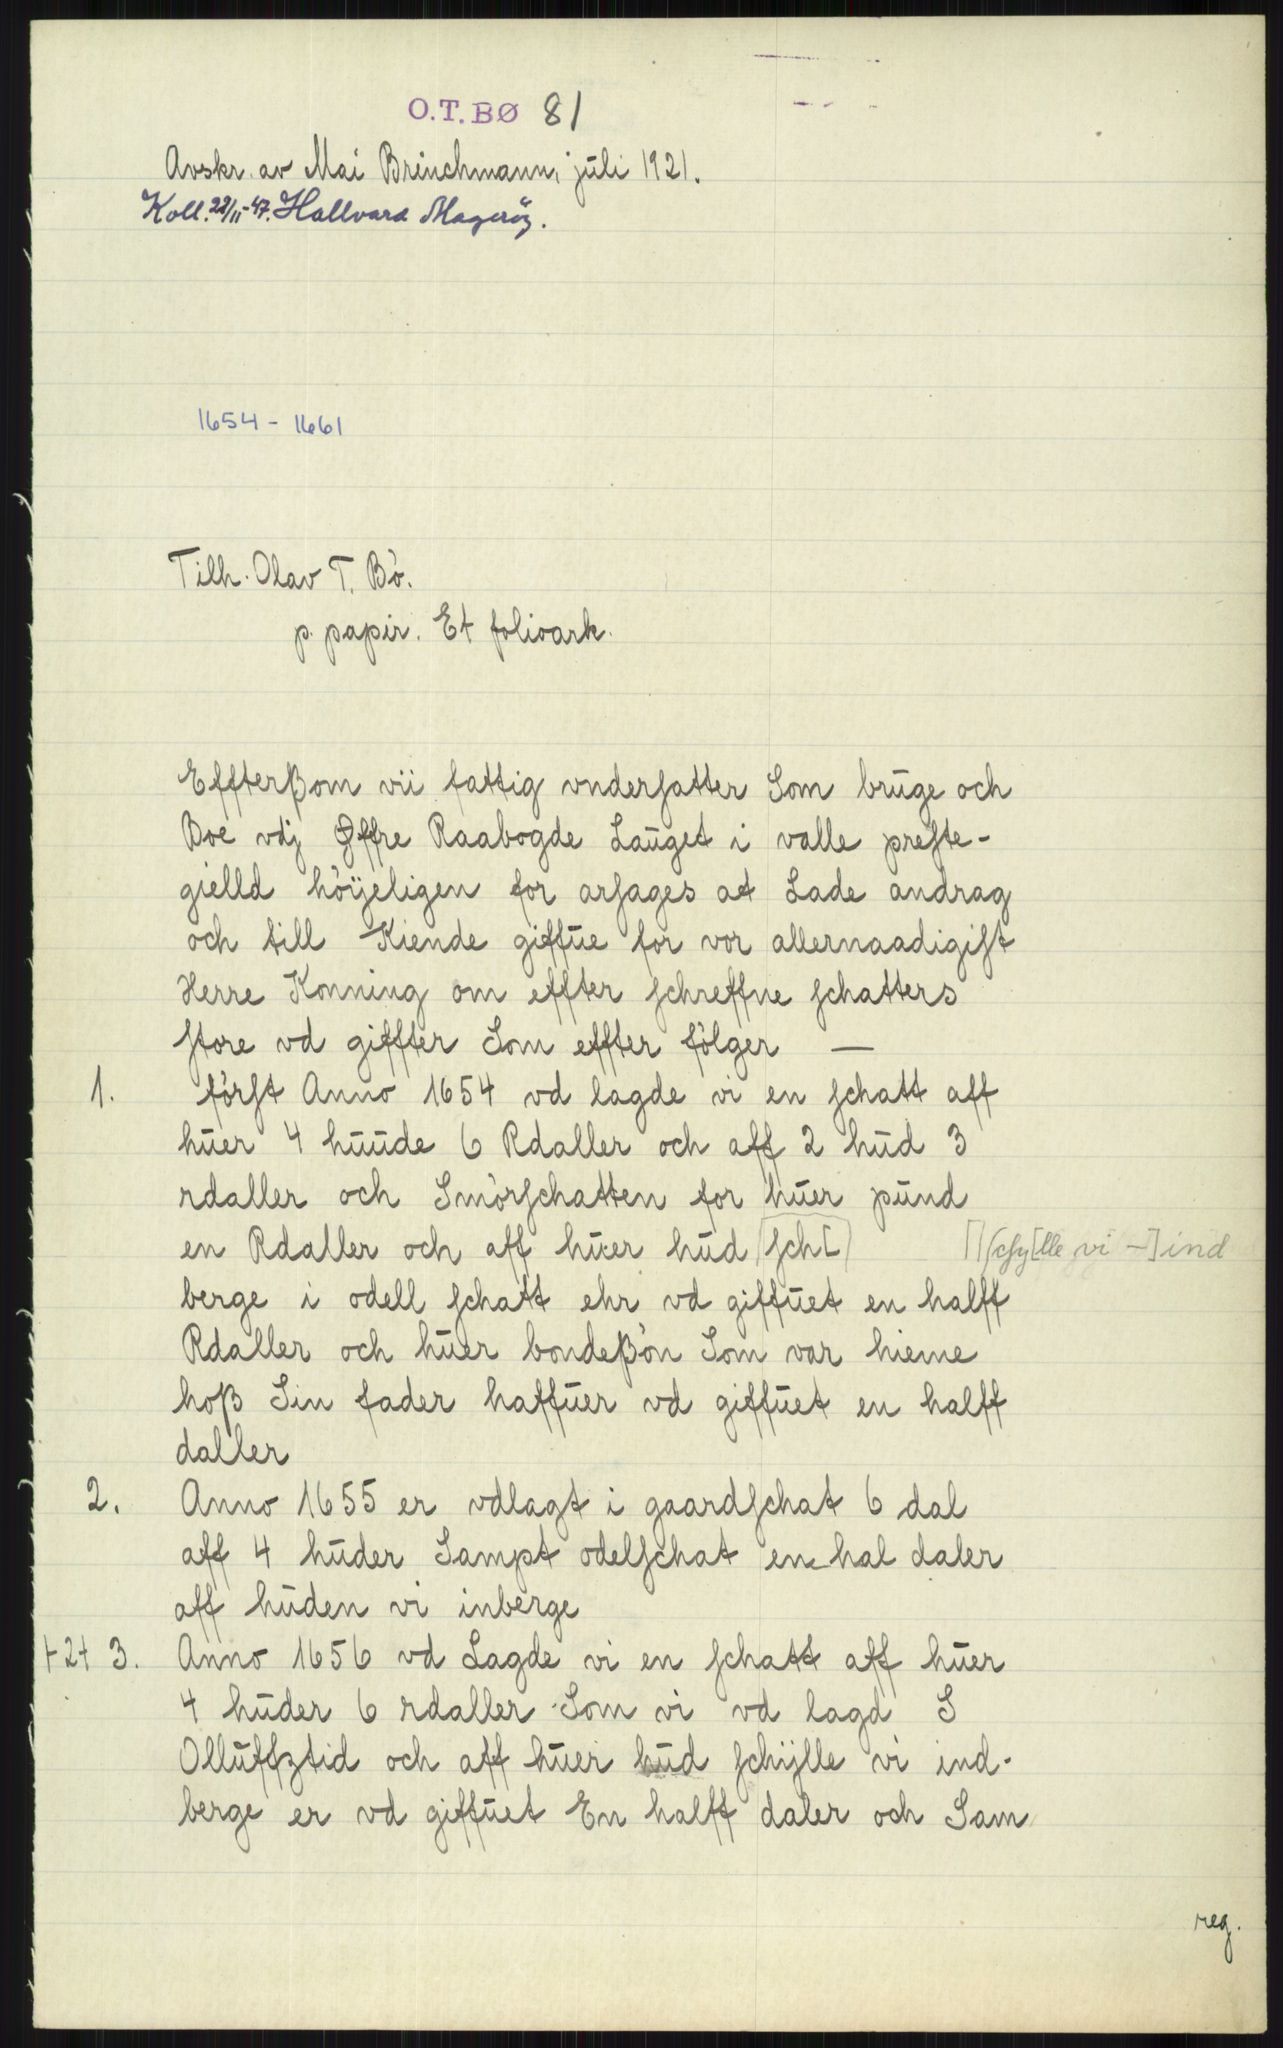 O.T.BØ 81
Avskr. av Mai Brinchmann, juli 1921.
Koll. 22/11-47. Hallvard Magerøy.
1654 - 1661
Tilh. Olav T. Bö.
p. papir. Et folioark.
Effterßom vii fattig vndersatter Som bruge och
Boe vdj Øffre Raabogde Lauget i valle preste-
gielld höÿeligen for arsages at Lade andrag
och till Kiende giffue for vor allernaadigist
Herre Konning om effter schreffne schatters
store vd giffter Som effter fölger —
1. först Anno 1654 vd lagde vi en schatt aff
huer 4 huude 6 Rdaller och aff 2 hud 3
rdaller och Smörschatten for huer pund
en Rdaller och aff huer hud [sch[ ] [ ] schy[lle vi -] ind
berge i odell schatt ehr vd giffuet en halff
Rdaller och huer bondeßön Som var hieme
hoß Sin fader haffuer vd giffuet en halff
daller
2. Anno 1655 er vdlagt i gaardschat 6 dal
aff 4 huder Sampt odelschat en hal daler
aff huden vi inberge
+2+ 3. Anno 1656 vd Lagde vi en schatt aff huer
4 huder 6 rdaller Som vi vd lagd S
Olluffztid och aff huer hud schÿlle vi ind-
berge er vd giffuet En halff daler och Sam
reg.